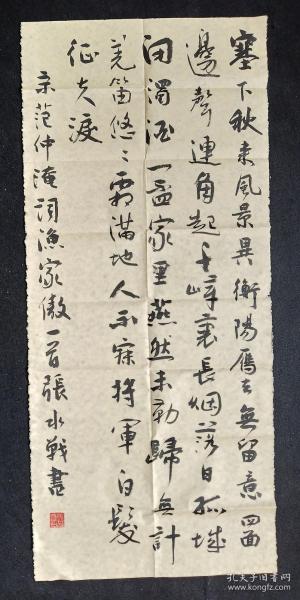 塞下秋来風景異衡陽雁去無留意四面
邊聲連角起千嶂裏長烟落日孤城
闭濁酒一盃家萬里燕然未勒歸無計
羌笛悠々霜滿地人不寐将軍白髮
征夫淚
宋范仲淹詞漁家傲一首張水戰書
孔夫子旧书网